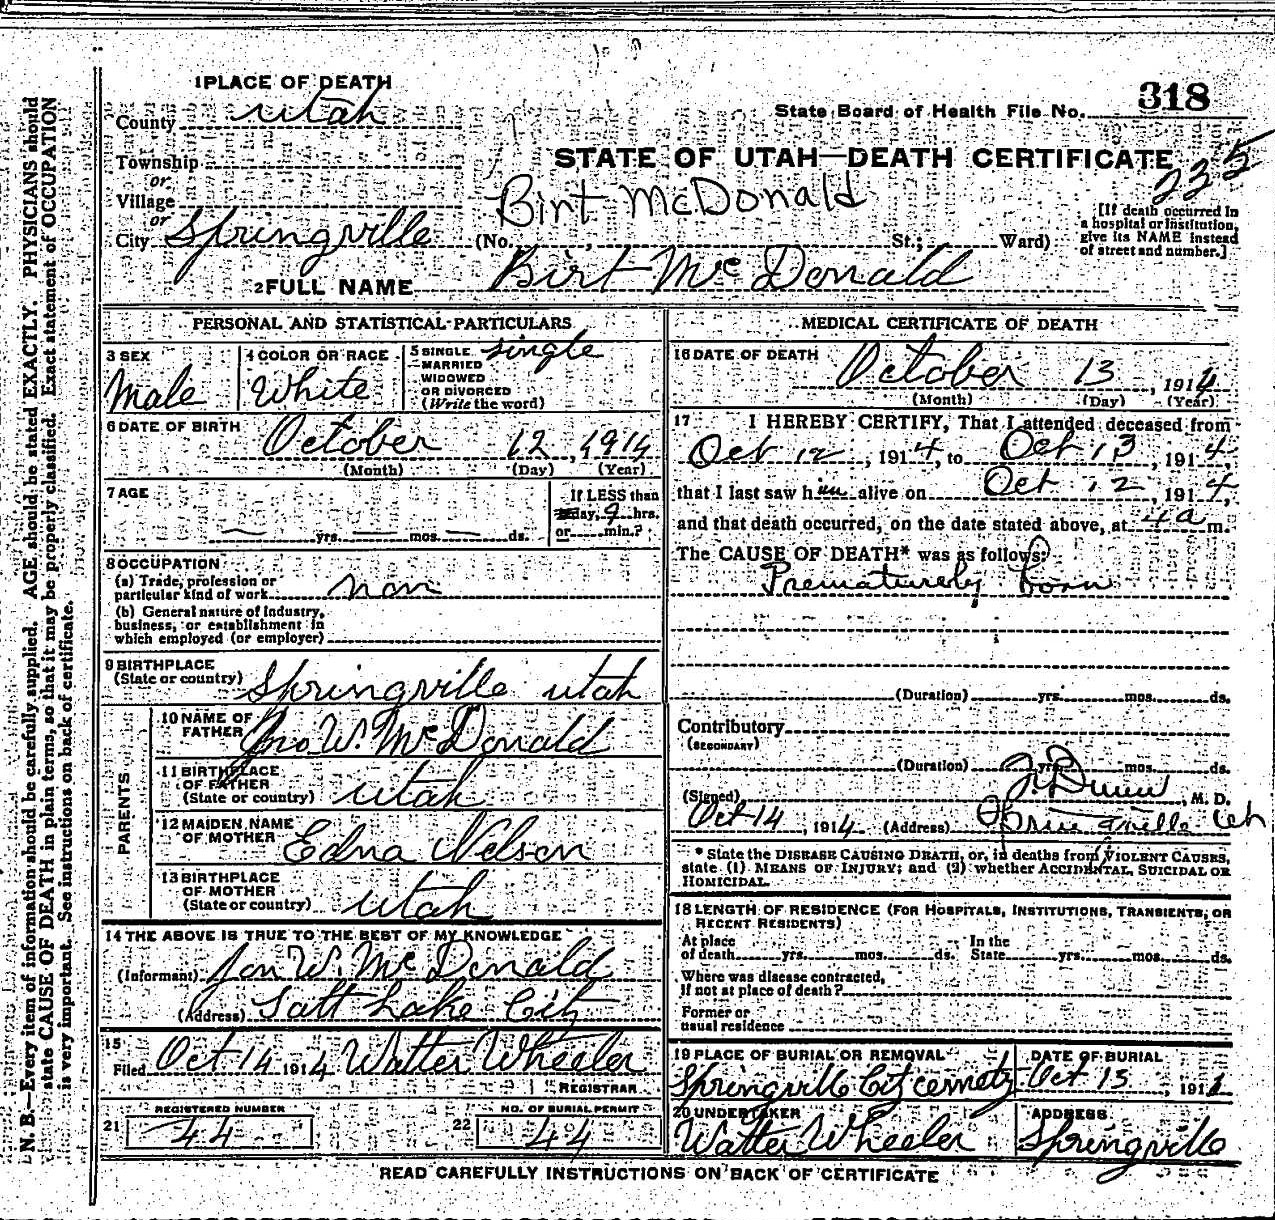 1 PLACE OF DEATH
County Utah
State Board of Health File No. 318
Township
or
Village
or
City Springville
STATE OF UTAH—DEATH CERTIFICATE
235
Birt McDonald
(No. , St.; Ward)
[If death occurred in
a hospital or institution,
give its NAME instead
of street and number.]
2 FULL NAME Birt McDonald
PERSONAL AND STATISTICAL PARTICULARS
3 SEX
Male
4 COLOR OR RACE
White
5 SINGLE
MARRIED
WIDOWED
OR DIVORCED
(Write the word)
single
6 DATE OF BIRTH
October 12, 1914
(Month) (Day) (Year)
7 AGE
— yrs. — mos. — ds.
If LESS than
day, 9 hrs.
or min.?
8 OCCUPATION
(a) Trade, profession or
particular kind of work non
(b) General nature of Industry,
business, or establishment in
which employed (or employer)
9 BIRTHPLACE
(State or country) Springville Utah
PARENTS
10 NAME OF
FATHER Jno W. McDonald
11 BIRTHPLACE
OF FATHER
(State or country) Utah
12 MAIDEN NAME
OF MOTHER Edna Nelson
13 BIRTHPLACE
OF MOTHER
(State or country) Utah
14 THE ABOVE IS TRUE TO THE BEST OF MY KNOWLEDGE
(Informant) Jon W. McDonald
(Address) Salt Lake City
15
Filed Oct 14 1914 Walter Wheeler
REGISTRAR
REGISTERED NUMBER
21 44
NO. OF BURIAL PERMIT
22 44
MEDICAL CERTIFICATE OF DEATH
16 DATE OF DEATH
October 13, 1914
(Month) (Day) (Year)
17 I HEREBY CERTIFY, That I attended deceased from
Oct 12, 1914, to Oct 13, 1914,
that I last saw him alive on Oct 12, 1914,
and that death occurred, on the date stated above, at 4 a m.
The CAUSE OF DEATH* was as follows:
Prematurely born
(Duration) yrs. mos. ds.
Contributory
(SECONDARY)
(Duration) yrs. mos. ds.
(Signed) Dunn, M. D.
Oct 14, 1914 (Address) Springville Utah
* State the DISEASE CAUSING DEATH, or, in deaths from VIOLENT CAUSES,
state (1) MEANS OF INJURY; and (2) whether ACCIDENTAL, SUICIDAL OR
HOMICIDAL.
18 LENGTH OF RESIDENCE (FOR HOSPITALS, INSTITUTIONS, TRANSIENTS, OR
RECENT RESIDENTS)
At place In the
of death yrs. mos. ds. State yrs. mos. ds.
Where was disease contracted,
if not at place of death?
Former or
usual residence
19 PLACE OF BURIAL OR REMOVAL
Springville City cemetry
DATE OF BURIAL
Oct 13, 191
20 UNDERTAKER
Walter Wheeler
ADDRESS
Springville
READ CAREFULLY INSTRUCTIONS ON BACK OF CERTIFICATE
N. B.—Every item of information should be carefully supplied. AGE should be stated EXACTLY. PHYSICIANS should
state CAUSE OF DEATH in plain terms, so that it may be properly classified. Exact statement of OCCUPATION
is very important. See instructions on back of certificate.